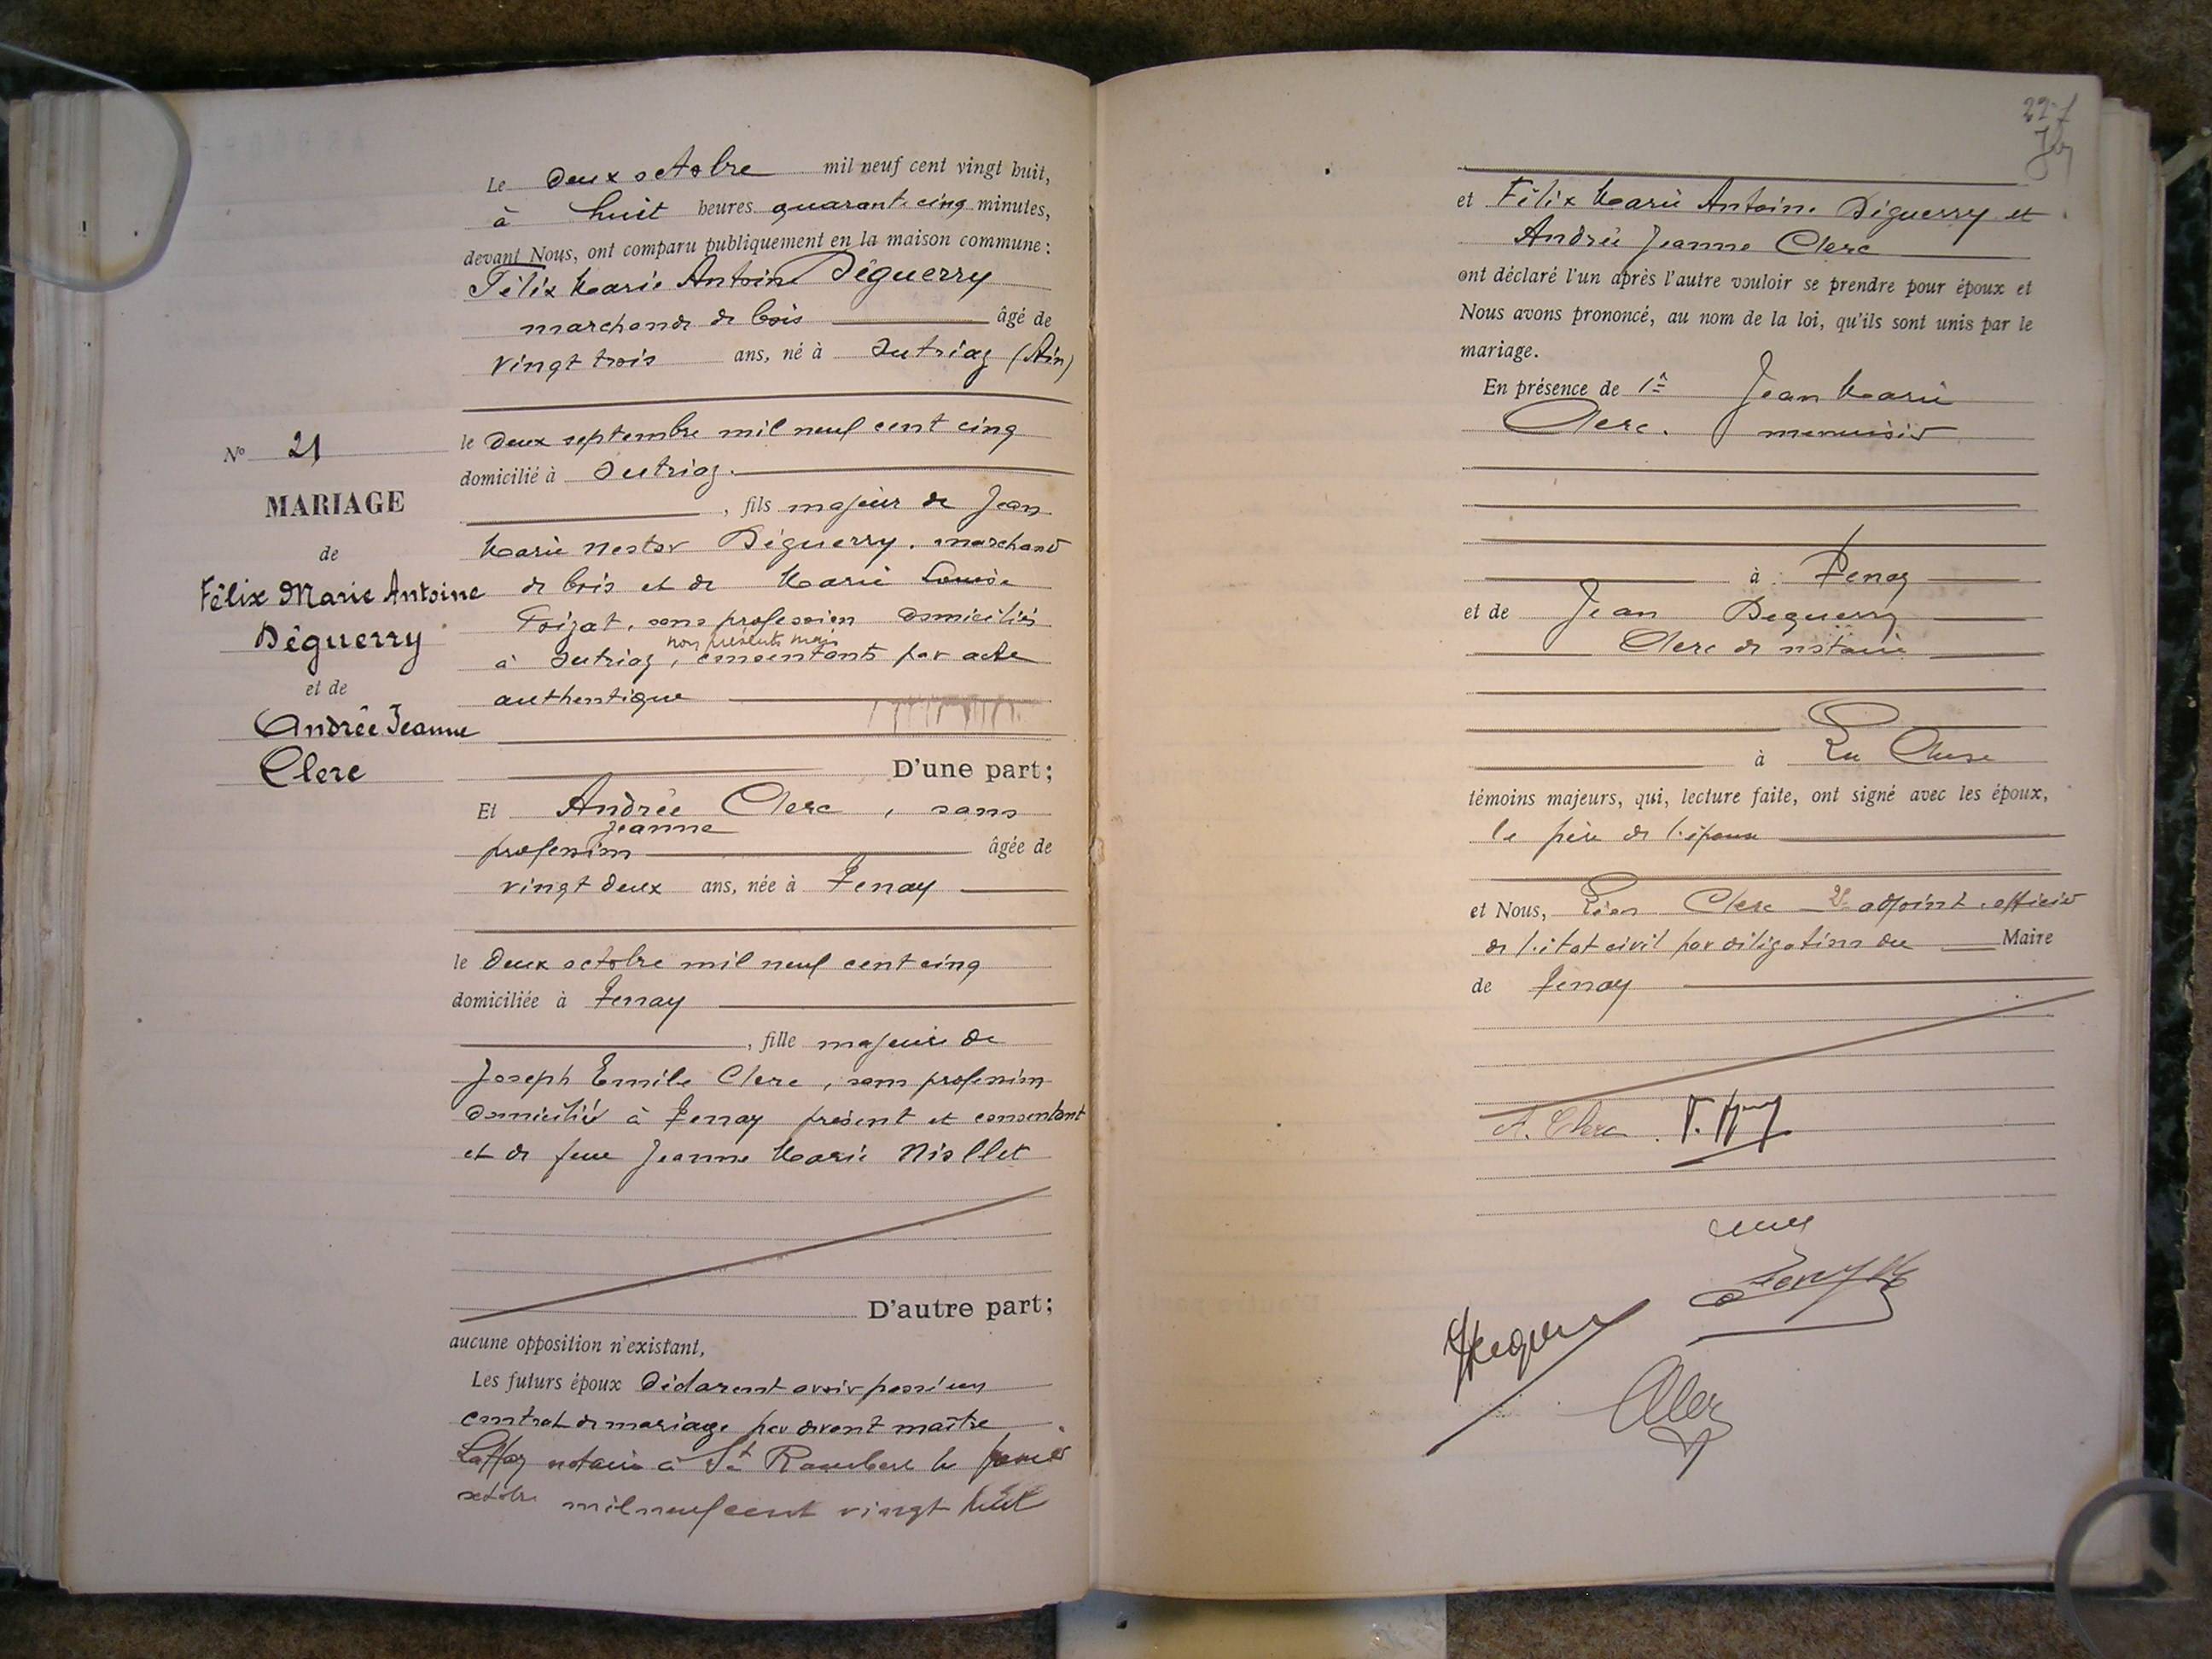 Le deux octobre mil neuf cent vingt huit,
à huit heures quarante cinq minutes,
devant Nous, ont comparu publiquement en la maison commune :
Félix Marie Antoine Déguerry
marchand de bois âgé de
vingt trois ans, né à Sutrieu (Ain)
le deux septembre mil neuf cent cinq
domicilié à
, fils majeur de Jean
Marie Nestor Déguerry, marchand
de bois et de Marie Louise
sans profession domiciliés
non présents mais
à consentants par acte
authentique
D'une part ;
Nº 21
MARIAGE
de
Félix Marie Antoine
Déguerry
et de
Andrée Jeanne
Clerc
Et Andrée Clerc, sans
Jeanne
profession âgée de
vingt deux ans, née à Tenay
le deux octobre mil neuf cent cinq
domiciliée à Tenay
, fille majeure de
Joseph Emile Clerc, sans profession
domicilié à Tenay présent et consentant
et de feue Jeanne Marie Niollet
D'autre part ;
aucune opposition n'existant,
Les futurs époux déclarent avoir passé un
contrat de mariage par devant maître
notaire à St Rambert le premier
octobre mil neuf cent vingt huit
227
et Félix Marie Antoine Déguerry et
Andrée Jeanne Clerc
ont déclaré l'un après l'autre vouloir se prendre pour époux et
Nous avons prononcé, au nom de la loi, qu'ils sont unis par le
mariage.
En présence de Jean Marie
Clerc, menuisier
à Tenay
et de Jean Deguerry
Clerc de notaire
à La Cluse
témoins majeurs, qui, lecture faite, ont signé avec les époux,
le père de l'épouse
et Nous, Léon Clerc 2e adjoint, officier
de l'état civil par délégation du Maire
de Tenay
A. Clerc